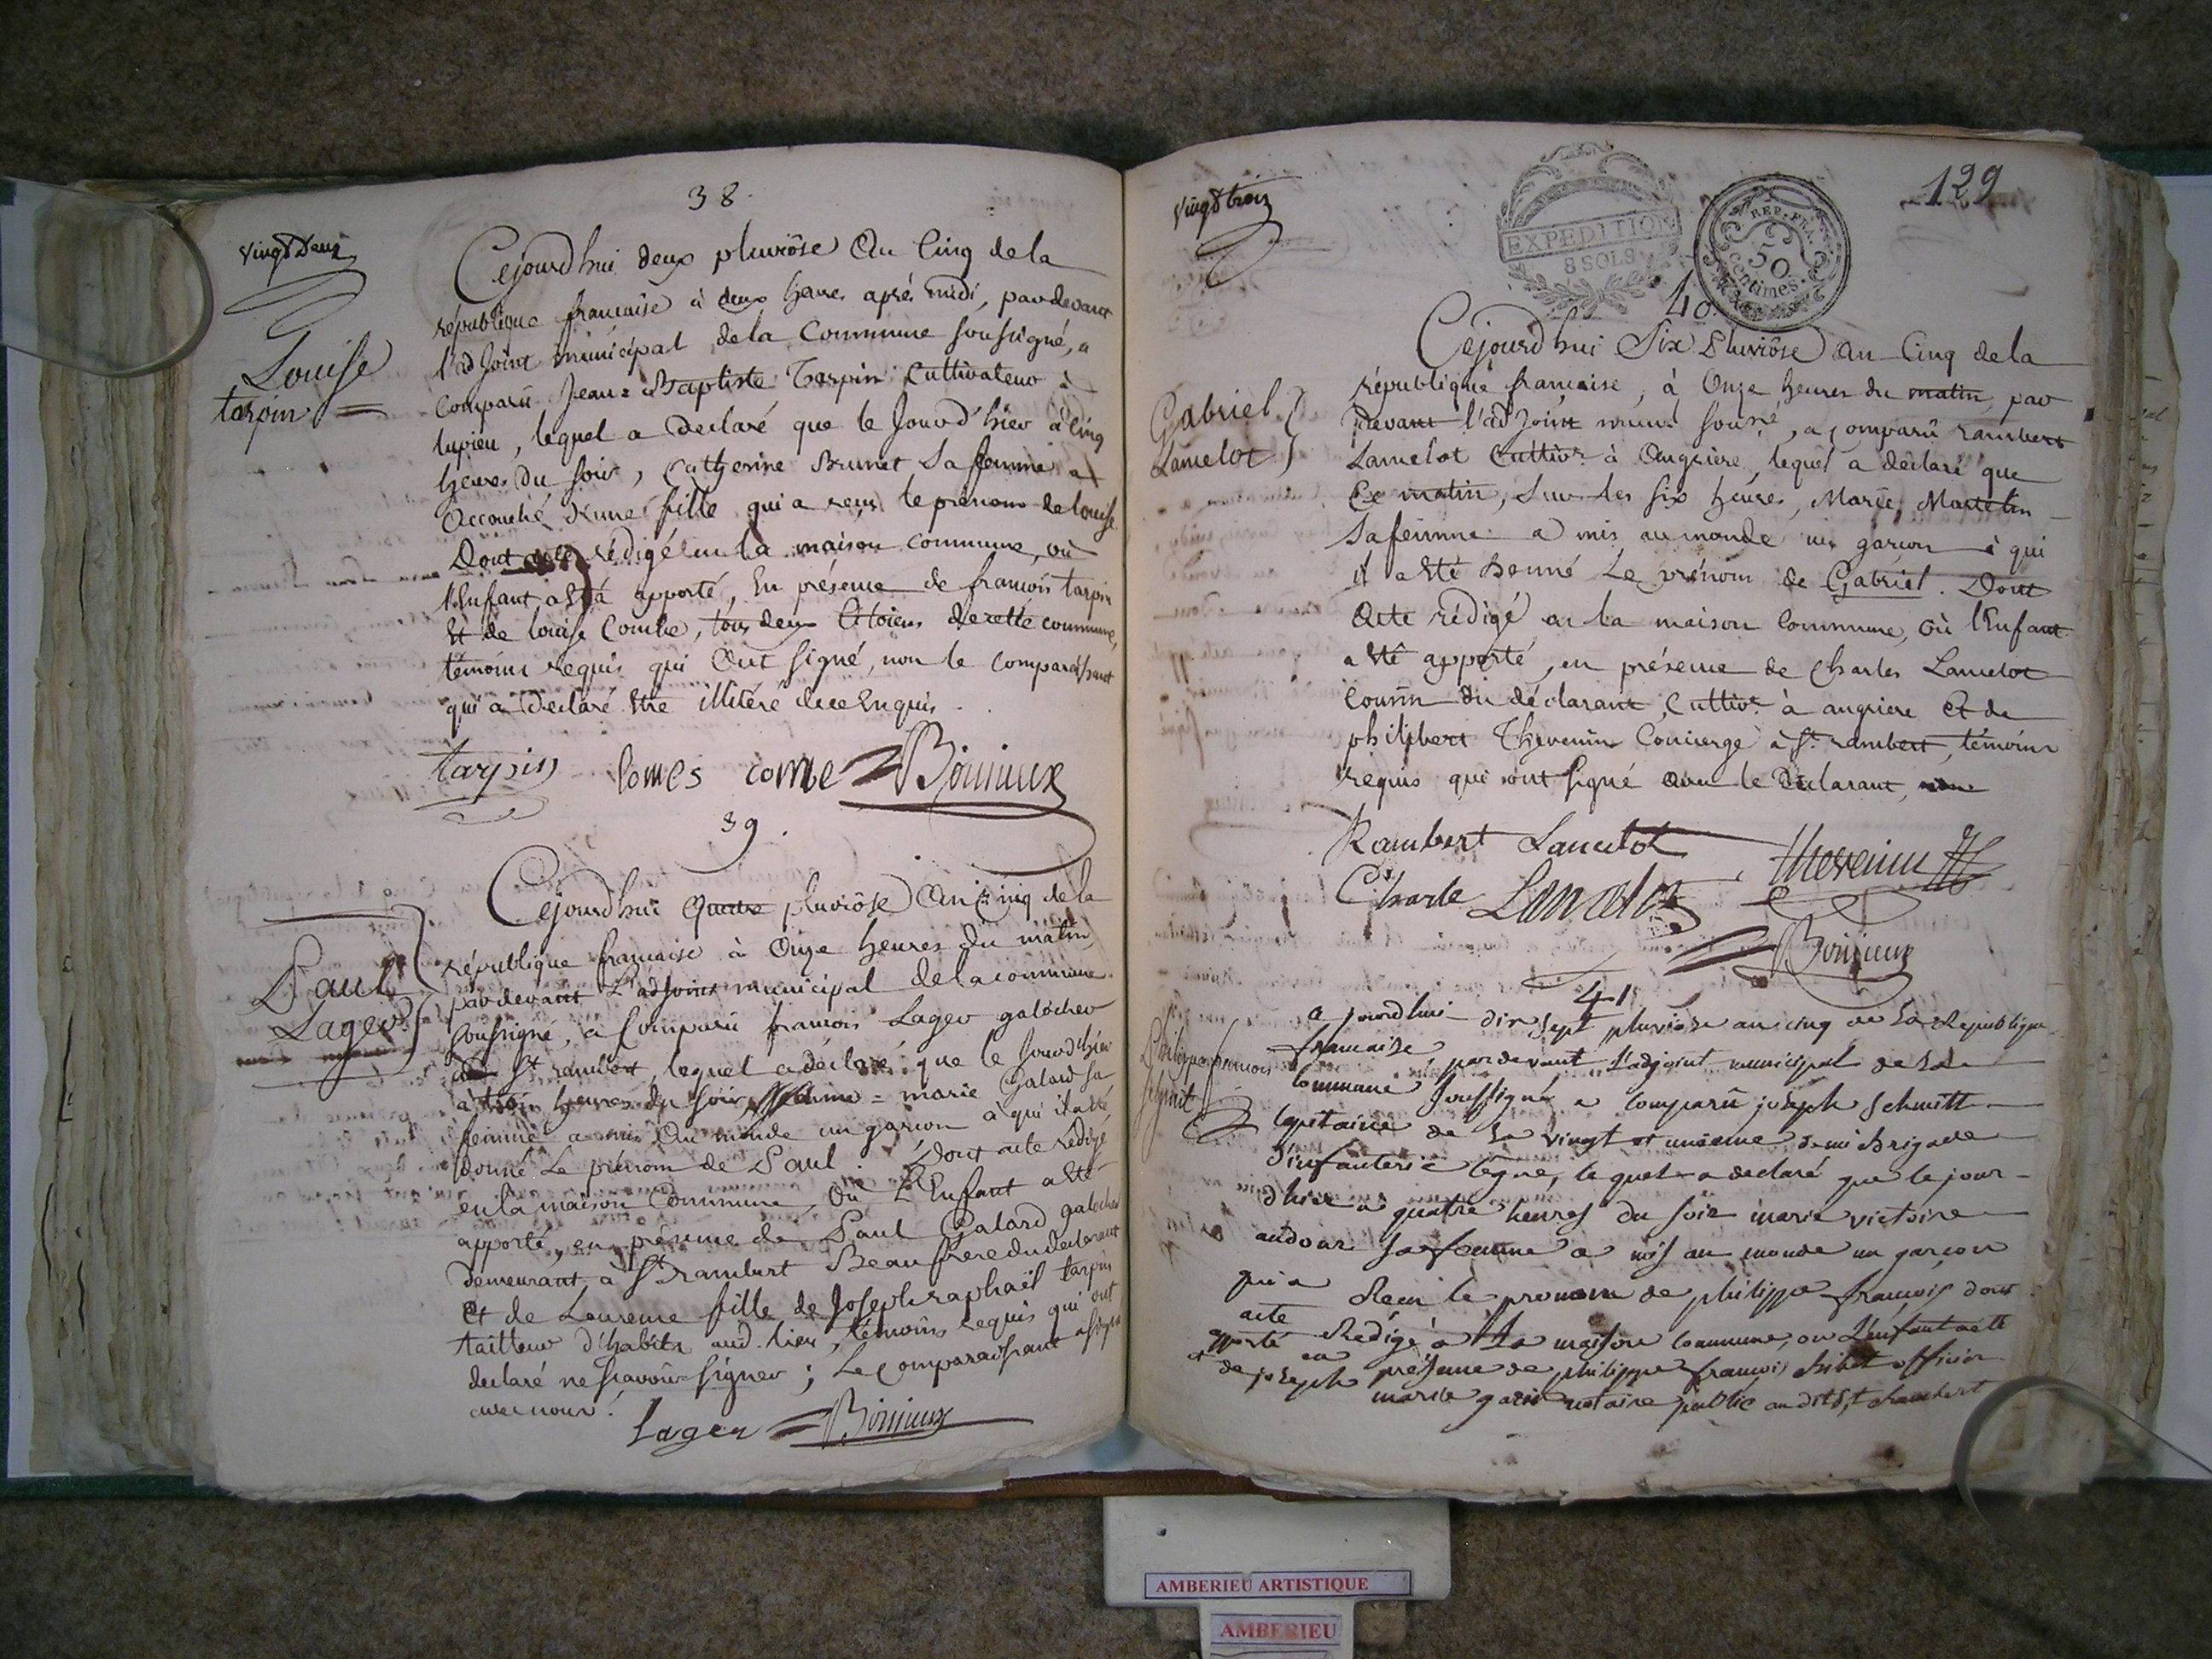 38.
vingt deux
Louise
tarpin =
Cejourdhui deux pluviôse An Cinq de la
république francaise à deux heures aprés midi, pardevant
l'adjoint municipal de la Commune soussigné, a
comparu Jean = Baptiste Tarpin Cultivateur à
lupieu, lequel a Declaré que le Jourd'hier à cinq
heures du soir, Catherine Brunet sa femme a
accouché d'une fille qui a reçu le prénom de louise
Dont acte rédigé en la maison commune, où
l'Enfant a Eté apporté, En présence de francois tarpin
Et de louise Combe, tous deux Citoiens de cette commune,
témoins requis qui Ont signé, non le comparaissant
qui a Declaré Etre illitéré de ce Enquis.
tarpin comes Bonieux
39.
Paul
Lager
Cejourdhui Quatre pluviôse An Cinq de la
république francaise à Onze heures du matin
pardevant L'adjoint municipal de la commune
soussigné, a Comparu francois Lager galocher
St rambert, lequel a déclaré que le Jourd'hier
à trois heures du soir = marie Galard sa
femme a mis Au monde un garcon à qui il a Eté
donné Le prénom de Paul. Dont acte rédigé
en la maison Commune, Où L'Enfant a Eté
apporté, en présence de Paul Galard galocher
demeurant à St rambert Beaufrere du declarant
et de Laurence fille de Joseph raphaël tarpin
tailleur d'habits aud. lieu, témoins requis qui ont
declaré ne scavoir signer; Le Comparaissant a signé
avec nous.
Lager = Bonieux
vingt trois
EXPEDITION
8 SOLS
REP. FRA.
50
centimes
129
40.
Gabriel
Lancelot
Cejourd'hui Six Pluviôse An Cinq de la
république francaise, à Onze heures du matin, par
devant l'adjoint munal sousné, a comparu rambert
Lancelot Cultivr à Angriere, lequel a déclaré que
Ce matin, sur les six heures, Marie Martelin
sa femme a mis au monde un garcon à qui
il a été donné Le prénom de Gabriel. Dont
Acte rédigé en la maison Commune, où l'Enfant
a Eté apporté, en présence de Charles Lancelot
cousin du déclarant, Cultivr à angriere Et de
philibert Thevenin Concierge à St rambert, témoins
requis qui ont signé avec le Déclarant,
Rambert Lancelot Thevenin
Charle Lancelot
Bonieux
41
Philippe francois
schmit
a jourdhui dix sept pluviose an cinq de La Republique
francaise, pardevant L'adjoint municipal de La
Commune Soussigné a comparu joseph schmitt
Capitaine de La vingt et unieme demi Brigade
d'infanterie legere, lequel a declaré que le jour
dhier a quatre heures du soir marie victoire
andour sa femme a mis au monde un garcon
qui a Recu le prenom de philippe francois dont
acte Redigé a La maison commune, ou L'enfant a eté
apporté en présence de philippe francois officier
et de joseph marie garin notaire public audit St Rambert
AMBERIEU ARTISTIQUE
AMBERIEU